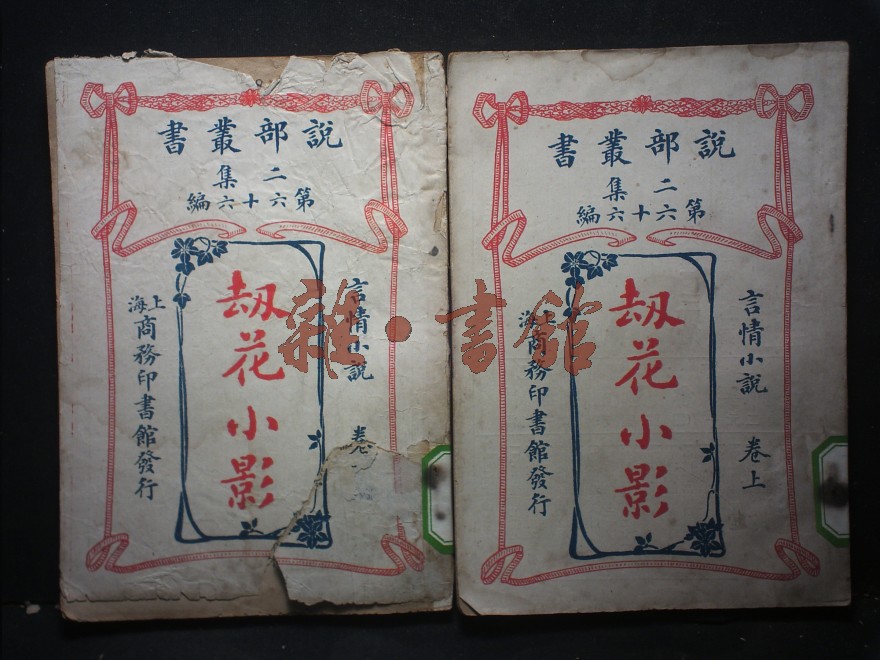 說部叢書
二集
第六十六編
言情小說 卷
刼花小影
上海商務印書館發行
說部叢書
二集
第六十六編
言情小說 卷上
刼花小影
上海商務印書館發行
雜·書館